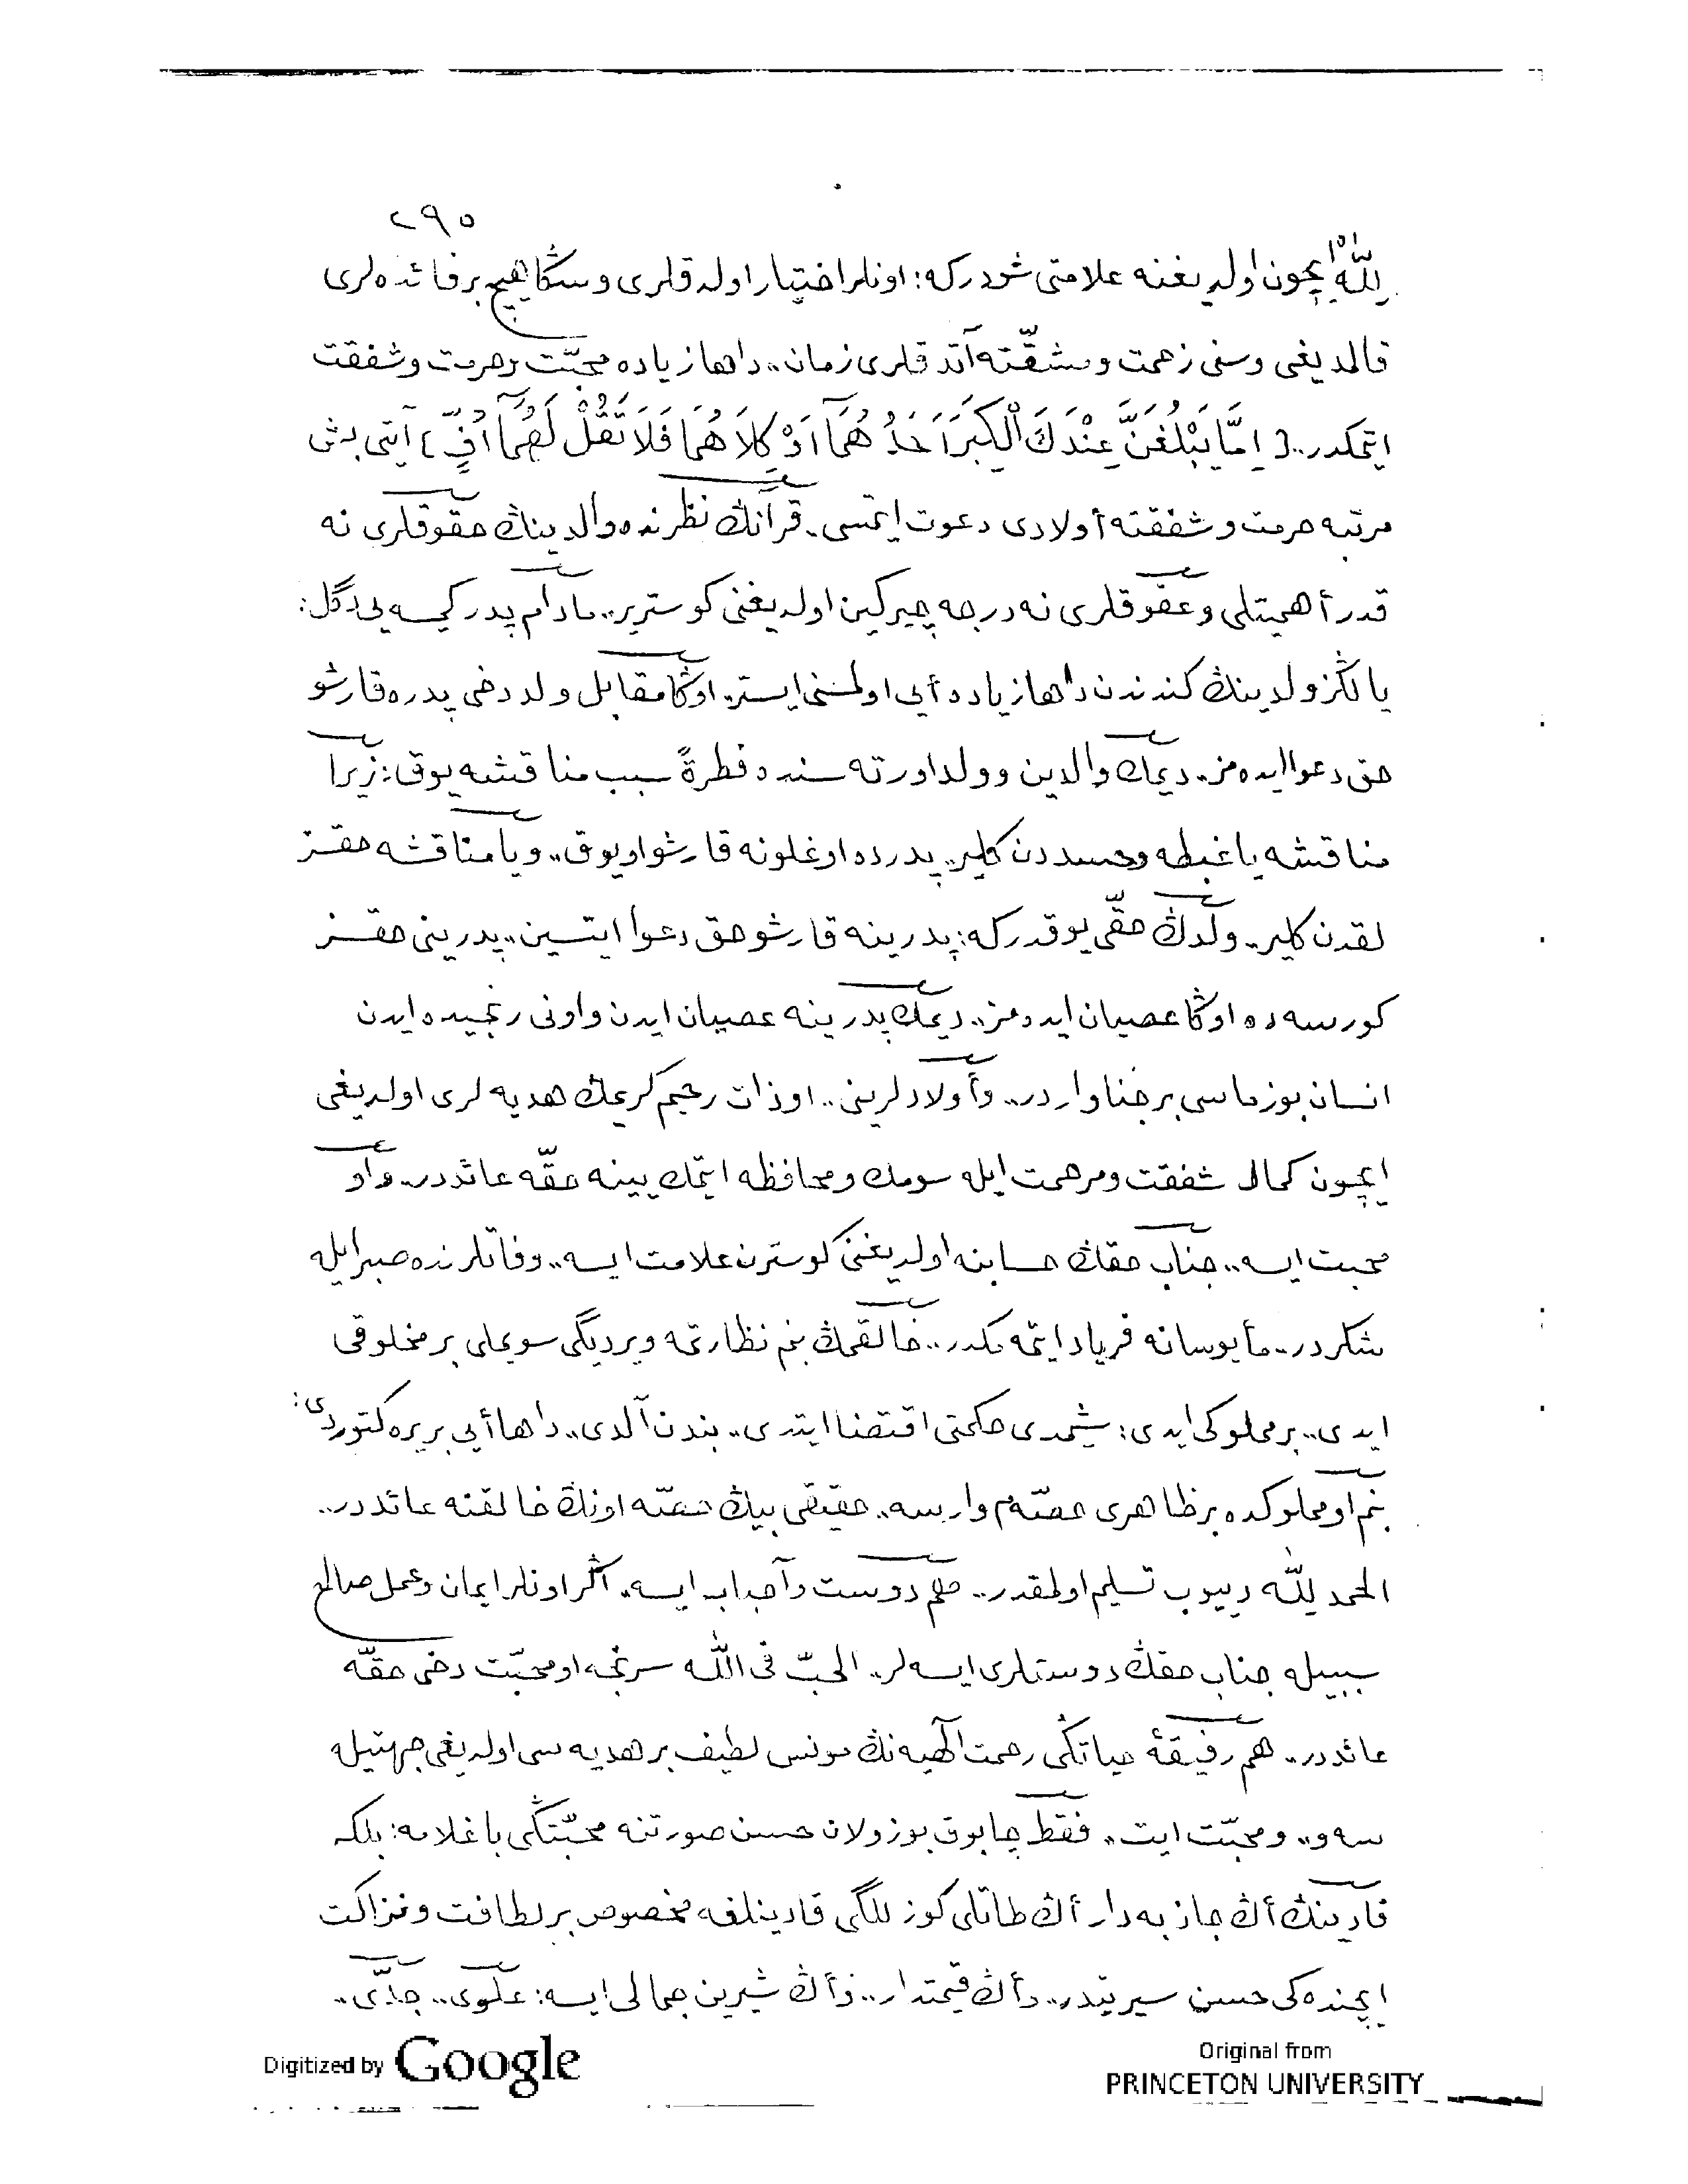 ٢٩٥
لِلّٰهْ ایچون اولدیغنه علامتی شودركه: اونلر اختیار اولدقلری وسڭا هیچ بر فائده‌لری
قالمدیغی وسنی زحمت ومشقّته آتدقلری زمان،، داها زیاده محبّت وحرمت وشفقت
ایتمكدر.. [ اِمَّا يَبْلُغَنَّ عِنْدَكَ الْكِبَرَ اَحَدُهُمَٓا اَوْ كِلَاهُمَا فَلَا تَقُلْ لَهُمَٓا اُفٍّ ] آیتی بش
مرتبه حرمت وشفقته أولادی دعوت ایتمسی، قرآنڭ نظرنده والدینڭ حقوقلری نه
قدر أهمیتلی وعقوقلری نه‌درجه چیركین اولدیغنی كوستریر.. مادام پدر كیمسه‌یی دگل:
یالڭز ولدینڭ كندندن داها زیاده أیی اولمسنی ایستر، اوڭا مقابل ولد دخی پدره قارشو
حق دعوا ایده‌مز. دیمك والدین وولد اورته‌سنده فطرةً سبب مناقشه یوق: زیرا
مناقشه یا غبطه وحسددن كلیر، پدرده اوغلونه قارشو او یوق،، ویا مناقشه حقسز
لقدن كلیر. ولدڭ حقّی یوقدركه: پدرینه قارشو حق دعوا ایتسین،، پدرینی حقسز
كورسه‌ده اوڭا عصیان ایده‌مز.. دیمك پدرینه عصیان ایدن واونی رنجیده ایدن
انسان بوزماسی بر جناواردر.. وأولادلرینی.. او ذات رحیم كریمڭ هدیه‌لری اولدیغی
ایچون كمال شفقت ومرحمت ایله سومك ومحافظه ایتمك یینه حقّه عائددر. واو
محبت ایسه،، جناب حقڭ حسابنه اولدیغنی كوسترن علامت ایسه،، وفاتلرنده صبر ایله
شكردر. مأیوسانه فریاد ایتمه‌مكدر.. خالقمڭ بنم نظارتمه ویردیگی سویملی بر مخلوقی
ایدی،، بر مملوكی ایدی: شیمدی حكمتی اقتضا ایتدی،، بندن آلدی،، داها أیی بر یره كتوردی:
بنم او مملوكده بر ظاهری حصّه‌م وارسه،، حقیقی بیڭ حصّه اونڭ خالقنه عائددر..
الحمد لِلّٰه دییوب تسلیم اولمقدر.. هم دوست وأحباب ایسه، اگر اونلر ایمان وعمل صالح
سببیله جناب حقڭ دوستلری ایسه‌لر، الحبّ فی اللّٰه سرنجه او محبّت دخی حقّه
عائددر. هم رفیقهٔ حیاتڭی رحمت الٓهیه‌نڭ مونس لطیف بر هدیه‌سی اولدیغی جهتیله
سه‌و،، ومحبّت ایت، فقط چابوق بوزولان حسن صورتنه محبّتڭی باغلامه: بلكه
قادینڭ أڭ جاذبه‌دار أڭ طاتلی كوزللگی قادینلغه مخصوص بر لطافت ونزاكت
ایچنده‌كی حسن سیرتیدر،، وأڭ قیمتدار،، وأڭ شیرین جمالی ایسه: علوی،، جدّی،،
Digitized by Google
Original from
PRINCETON UNIVERSITY